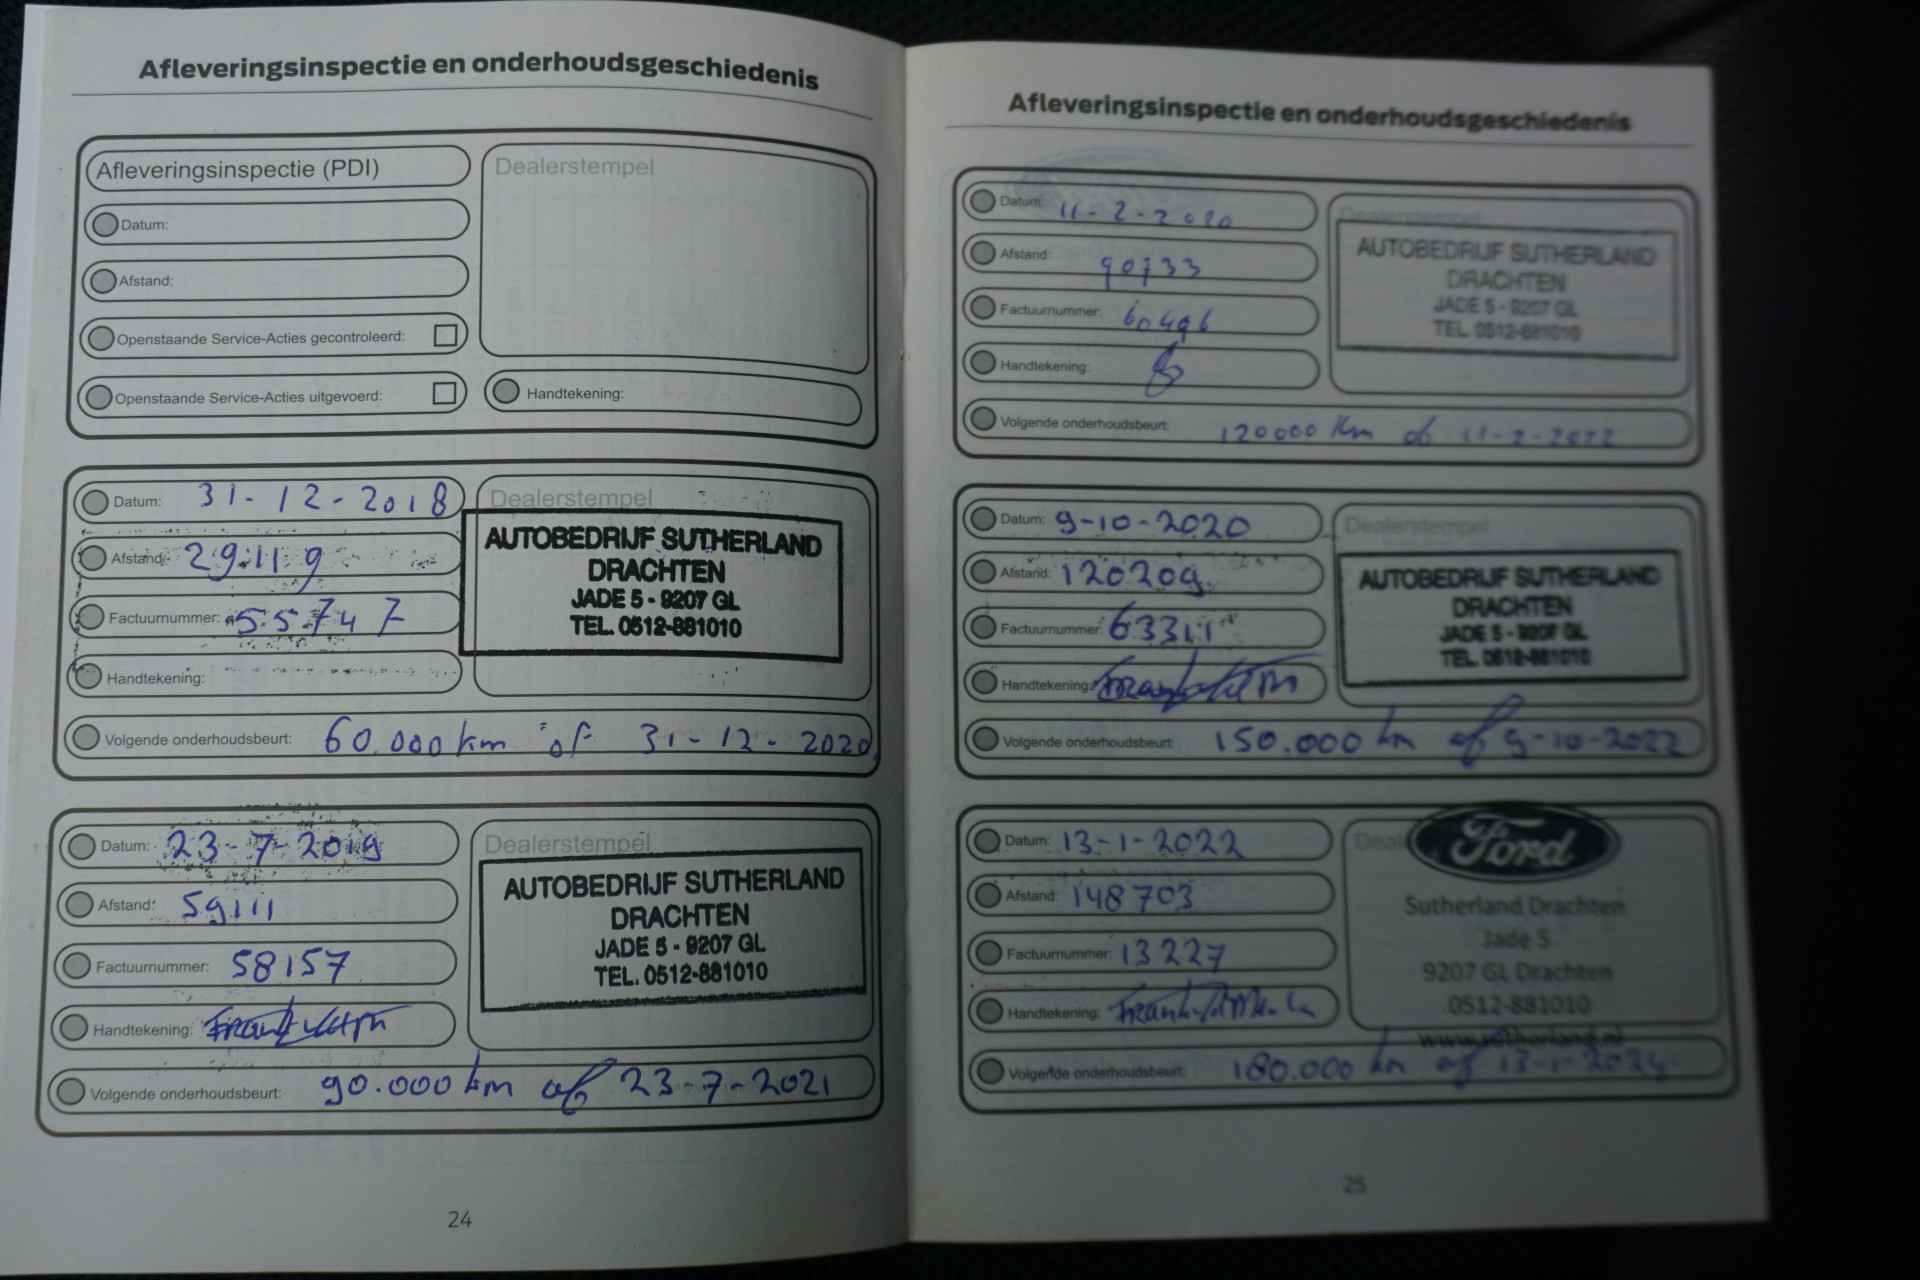 Afleveringsinspectie en onderhoudsgeschiedenis
Afleveringsinspectie (PDI)
Dealerstempel
Datum:
Afstand:
Openstaande Service-Acties gecontroleerd:
Openstaande Service-Acties uitgevoerd:
Handtekening:
Datum: 31-12-2018
Dealerstempel
Afstand: 29119
AUTOBEDRIJF SUTHERLAND
DRACHTEN
JADE 5 - 9207 GL
TEL. 0512-881010
Factuurnummer: 55747
Handtekening:
Volgende onderhoudsbeurt: 60.000 km of 31-12-2020
Datum: 23-7-2019
Dealerstempel
Afstand: 59111
AUTOBEDRIJF SUTHERLAND
DRACHTEN
JADE 5 - 9207 GL
TEL. 0512-881010
Factuurnummer: 58157
Handtekening:
Volgende onderhoudsbeurt: 90.000 km of 23-7-2021
24
Afleveringsinspectie en onderhoudsgeschiedenis
Datum: 11-2-2020
Dealerstempel
Afstand: 90733
AUTOBEDRIJF SUTHERLAND
DRACHTEN
JADE 5 - 9207 GL
TEL. 0512-881010
Factuurnummer: 60496
Handtekening:
Volgende onderhoudsbeurt: 120000 km of 11-2-2022
Datum: 9-10-2020
Dealerstempel
Afstand: 120209
AUTOBEDRIJF SUTHERLAND
DRACHTEN
JADE 5 - 9207 GL
TEL. 0512-881010
Factuurnummer: 63311
Handtekening:
Volgende onderhoudsbeurt: 150.000 km of 9-10-2022
Datum: 13-1-2022
Ford
Afstand: 148703
Sutherland Drachten
Jade 5
9207 GL Drachten
0512-881010
www.sutherland.nl
Factuurnummer: 13227
Handtekening:
Volgende onderhoudsbeurt: 180.000 km of 13-1-2024
25